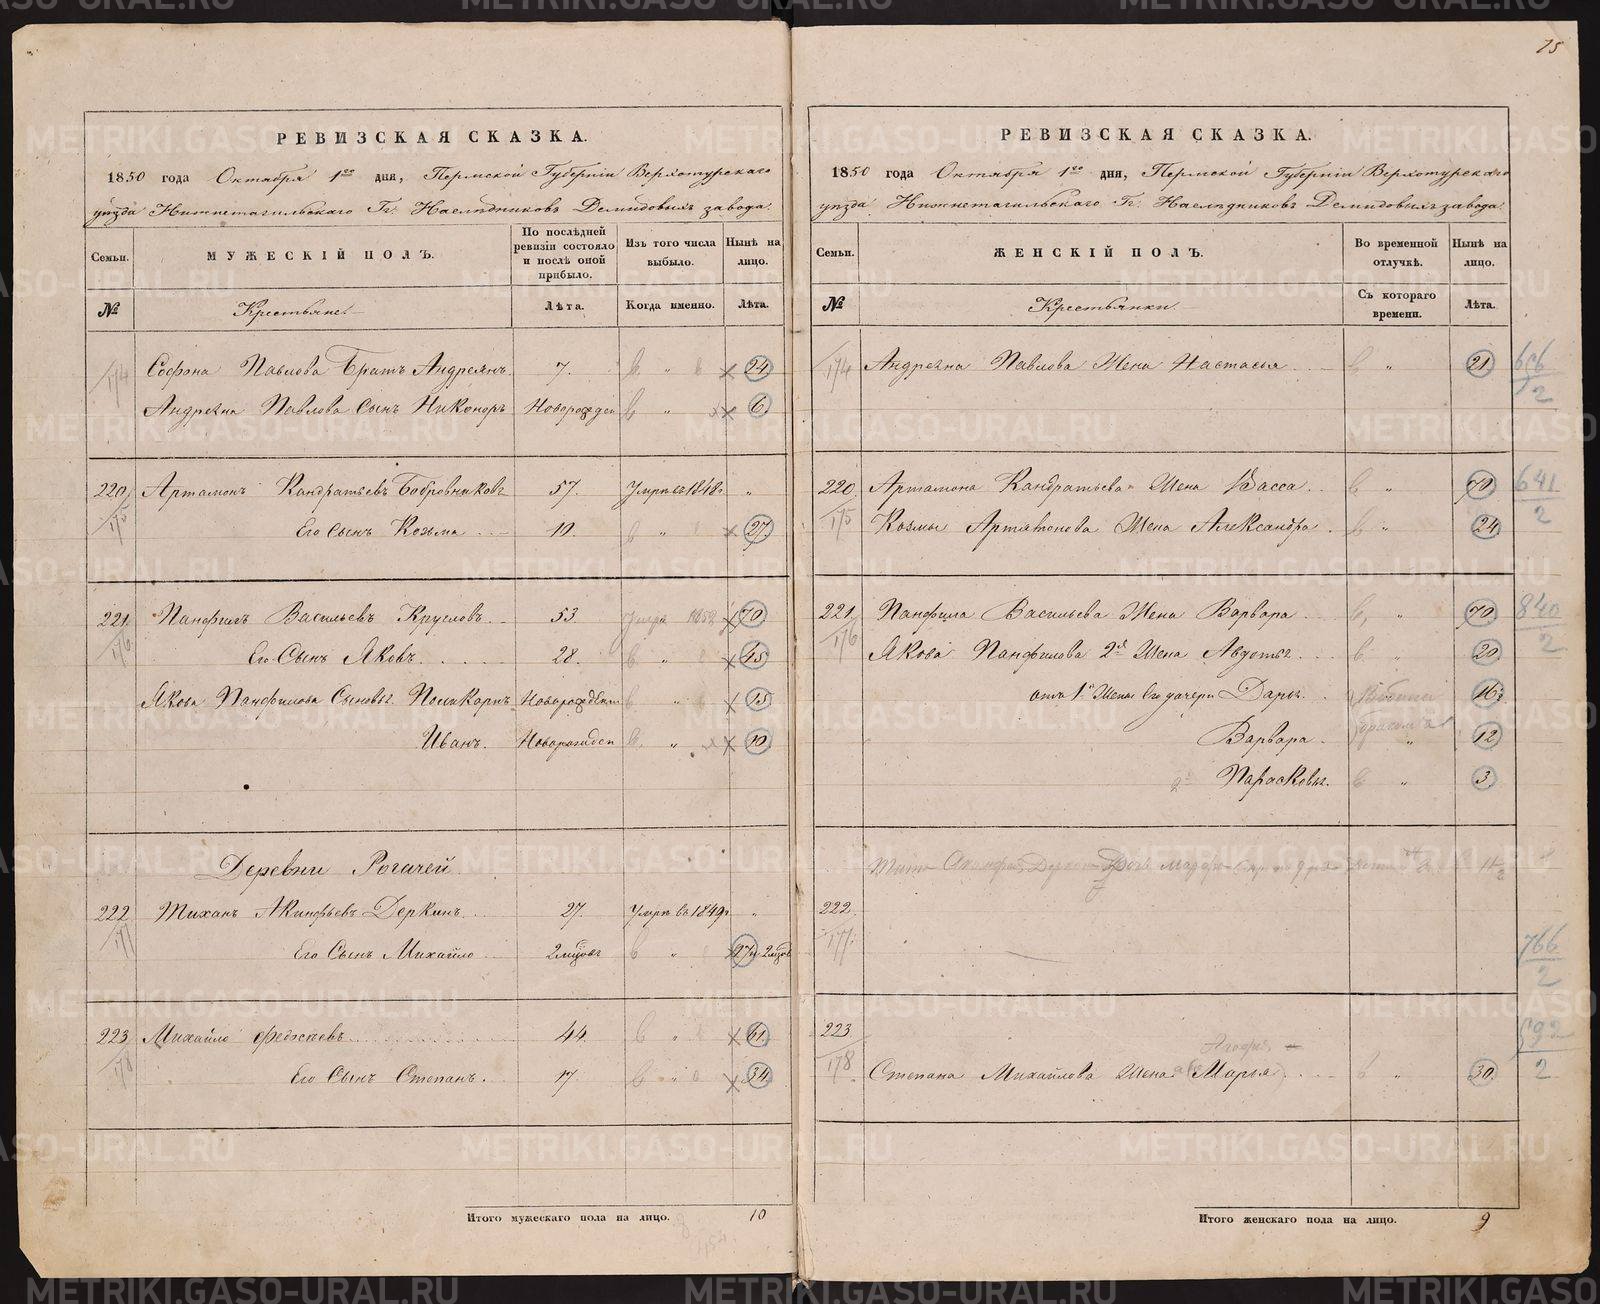 75
РЕВИЗСКАЯ СКАЗКА.
1850 года Октября 1го дня, Пермской Губерніи Верхотурскаго
уѣзда Нижнетагильскаго Гг. Наслѣдниковъ Демидовыхъ завода.
Семьи.
МУЖЕСКІЙ ПОЛЪ.
По послѣдней ревизіи состояло и послѣ оной прибыло.
Изъ того числа выбыло.
Нынѣ на лицо.
№
Крестьяне.
Лѣта.
Когда именно.
Лѣта.
174 Софона Павлова Братъ Андреянъ 7. " 24
Андреяна Павлова Сынъ Никоноръ Новорожден " 6
220 Артамонъ Кандратьевъ Бобровниковъ 57. Умре въ 1848г "
175 Его Сынъ Козьма 10. " 27
221 Панфилъ Васильевъ Кругловъ 53. Умре 1852 70
176 Его Сынъ Яковъ 28. " 45
Якова Панфилова Сыновья Поликарпъ Новорожден " 15
Иванъ. Новорожден " 10
Деревни Рогачей
222 Тиханъ Акинфьевъ Деркинъ 27. Умре въ 1849г "
177 Его Сынъ Михайло 2 мѣсцовъ "
223 Михайло Федѣевъ 44. " 61
178 Его Сынъ Степанъ. 17. " 34
Итого мужескаго пола на лицо. 10
РЕВИЗСКАЯ СКАЗКА.
1850 года Октября 1го дня, Пермской Губерніи Верхотурскаго
уѣзда Нижнетагильскаго Гг. Наслѣдниковъ Демидовыхъ завода.
Семьи.
ЖЕНСКІЙ ПОЛЪ.
Во временной отлучкѣ.
Нынѣ на лицо.
№
Крестьянки.
Съ котораго времени.
Лѣта.
174 Андреяна Павлова Жена Настасья " 21 656/2
220 Артамона Кандратьева Жена Васса " 70 641/2
175 Козмы Артамонова Жена Александра " 24
221 Панфила Васильева Жена Варвара " 70 840/2
176 Якова Панфилова 2я Жена Авдотья " 20
отъ 1й Жены его дочери Дарья 16
Варвара " 12
Парасковья. " 3
222
177 766/2
223 592/2
178 Степана Михайлова Жена Марья " 30
Итого женскаго пола на лицо. 9
METRIKI.GASO-URAL.RU